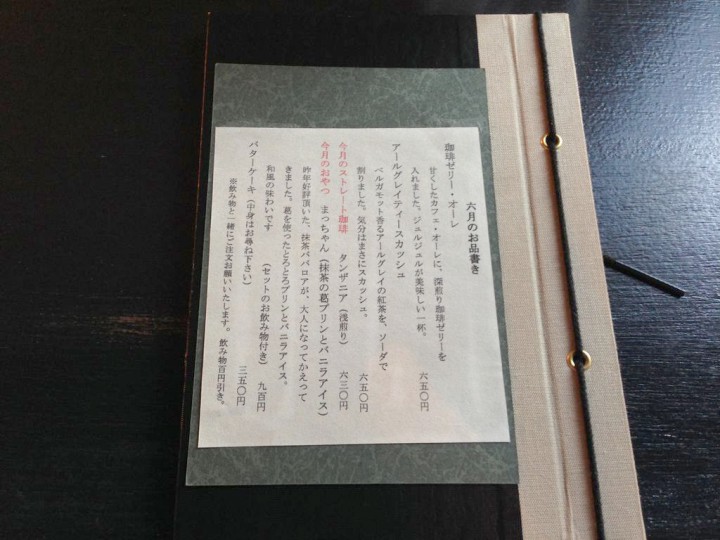 六月のお品書き
珈琲ゼリー・オーレ
甘くしたカフェ・オーレに、深煎り珈琲ゼリーを
入れました。ジュルジュルが美味しい一杯。
六五〇円
アールグレイティースカッシュ
ベルガモット香るアールグレイの紅茶を、ソーダで
割りました。気分はまさにスカッシュ。
六五〇円
今月のストレート珈琲 タンザニア（浅煎り） 六三〇円
今月のおやつ まっちゃん（抹茶の葛プリンとバニラアイス）
昨年好評頂いた、抹茶ババロアが、大人になってかえって
きました。葛を使ったとろとろプリンとバニラアイス。
和風の味わいです （セットのお飲み物付き） 九百円
バターケーキ（中身はお尋ね下さい） 三五〇円
※飲み物と一緒にご注文お願いいたします。飲み物百円引き。